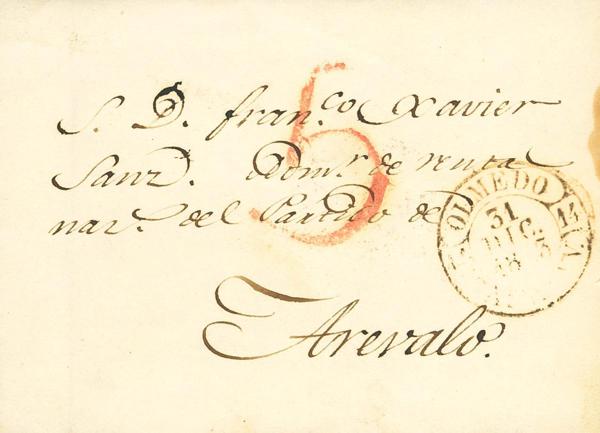 S. D. Fran.co Xavier
Sanz. Adm.r de renta
nac.s del Partido de
Arevalo.
5
OLMEDO
31
DIC
18